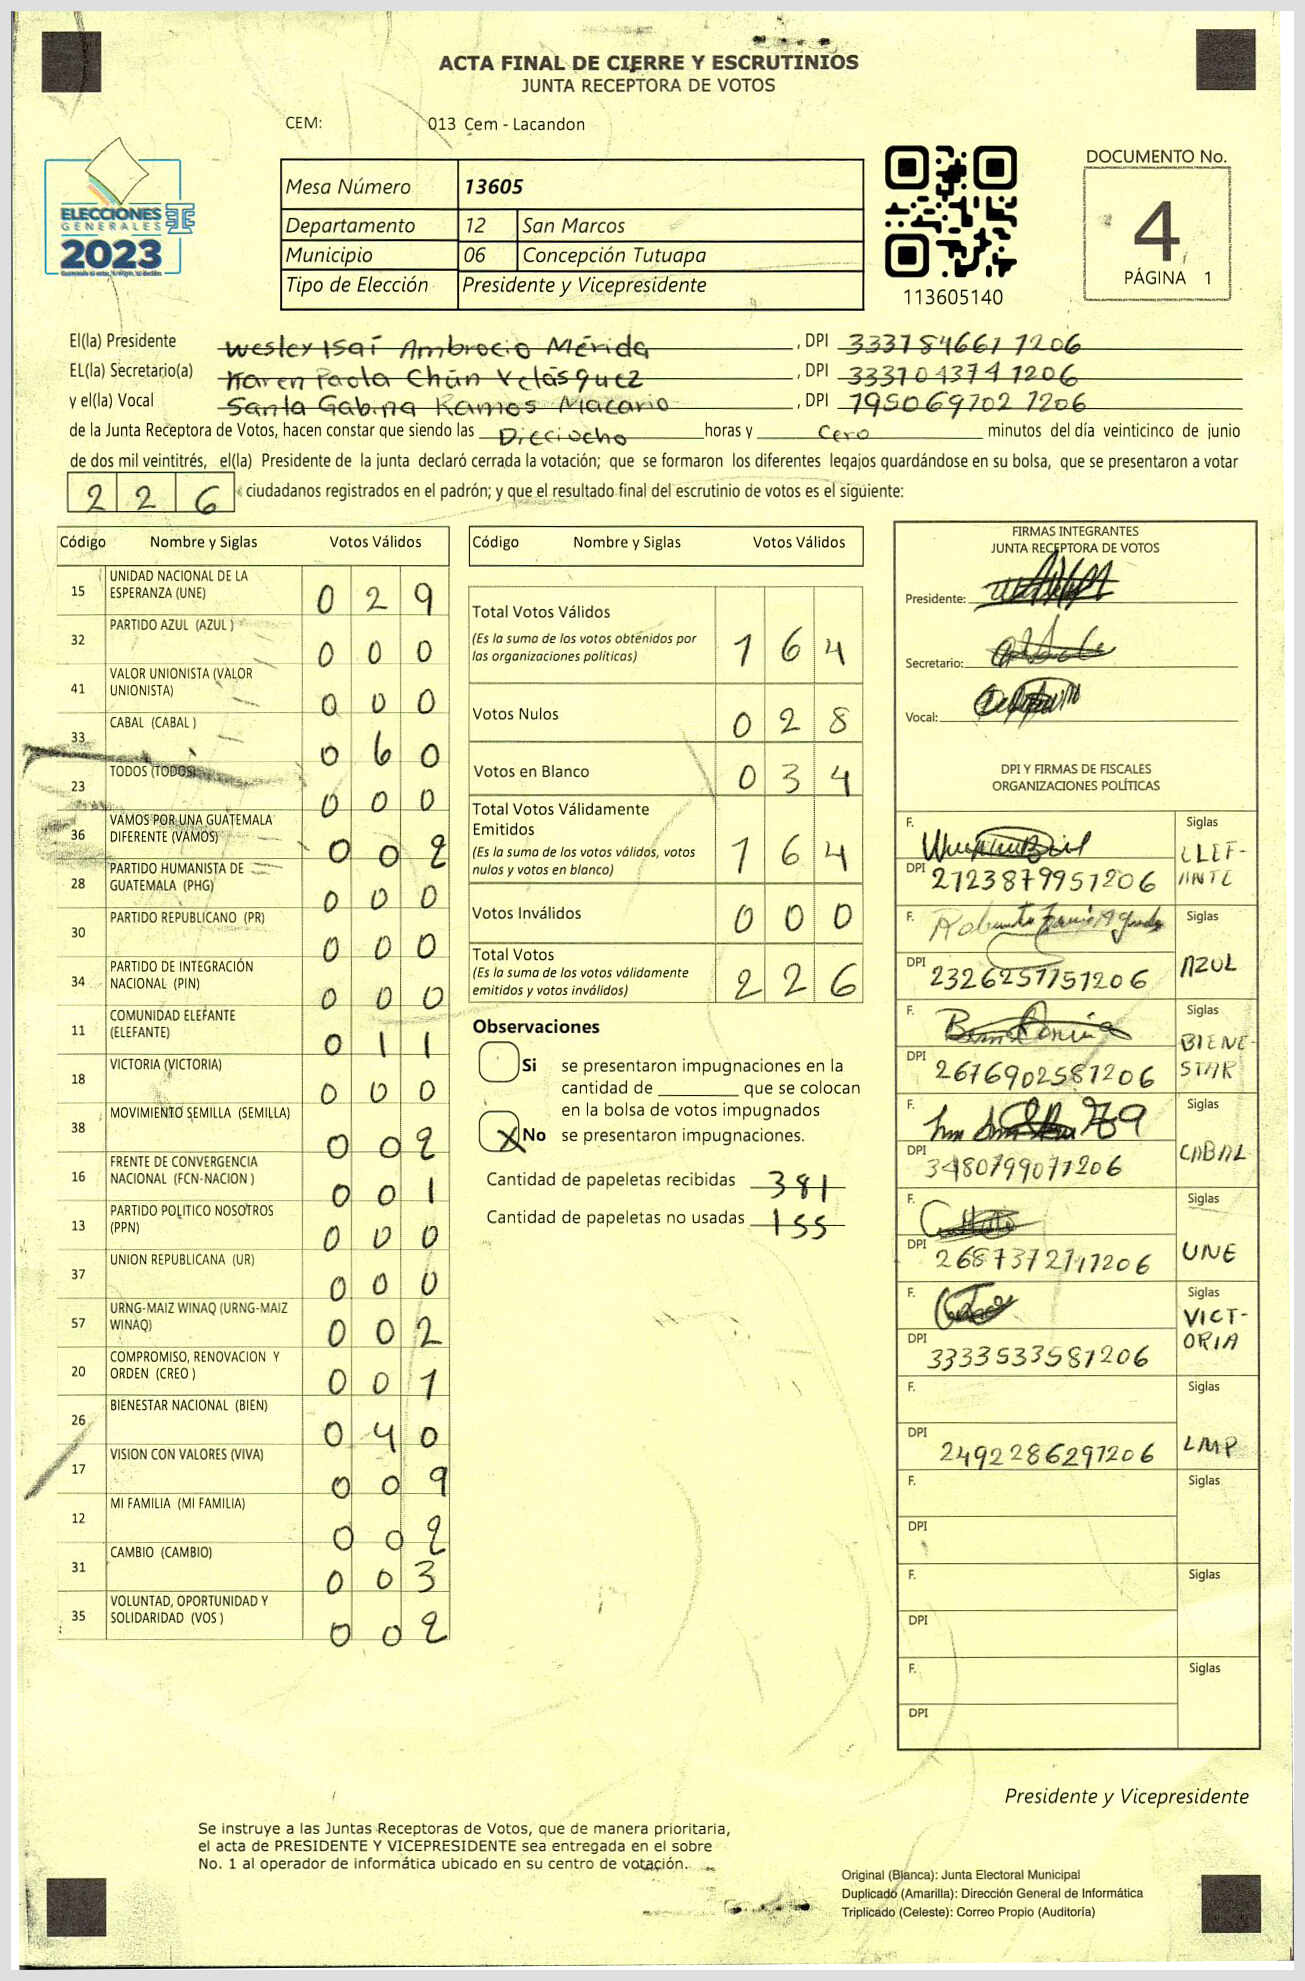 ACTA FINAL DE CIERRE Y ESCRUTINIOS
JUNTA RECEPTORA DE VOTOS
CEM: 013 Cem - Lacandon
ELECCIONES
GENERALES
2023
Mesa Número 13605
Departamento 12 San Marcos
Municipio 06 Concepción Tutuapa
Tipo de Elección Presidente y Vicepresidente
113605140
DOCUMENTO No.
4
PÁGINA 1
El(la) Presidente Wesley Isaí Ambrocio Mérida, DPI 3337846611206
EL(la) Secretario(a) Karen Paola Chún Velásquez, DPI 3331043741206
y el(la) Vocal Santa Gabina Ramos Macario, DPI 1950697021206
de la Junta Receptora de Votos, hacen constar que siendo las Dieciocho horas y Cero minutos del día veinticinco de junio
de dos mil veintitrés, el(la) Presidente de la junta declaró cerrada la votación; que se formaron los diferentes legajos guardándose en su bolsa, que se presentaron a votar
226 ciudadanos registrados en el padrón; y que el resultado final del escrutinio de votos es el siguiente:
Código Nombre y Siglas Votos Válidos
15 UNIDAD NACIONAL DE LA ESPERANZA (UNE) 029
32 PARTIDO AZUL (AZUL ) 000
41 VALOR UNIONISTA (VALOR UNIONISTA) 000
33 CABAL (CABAL ) 060
23 TODOS (TODOS) 000
36 VAMOS POR UNA GUATEMALA DIFERENTE (VAMOS) 002
28 PARTIDO HUMANISTA DE GUATEMALA (PHG) 000
30 PARTIDO REPUBLICANO (PR) 000
34 PARTIDO DE INTEGRACIÓN NACIONAL (PIN) 000
11 COMUNIDAD ELEFANTE (ELEFANTE) 011
18 VICTORIA (VICTORIA) 000
38 MOVIMIENTO SEMILLA (SEMILLA) 002
16 FRENTE DE CONVERGENCIA NACIONAL (FCN-NACION ) 001
13 PARTIDO POLITICO NOSOTROS (PPN) 000
37 UNION REPUBLICANA (UR) 000
57 URNG-MAIZ WINAQ (URNG-MAIZ WINAQ) 002
20 COMPROMISO, RENOVACION Y ORDEN (CREO ) 001
26 BIENESTAR NACIONAL (BIEN) 040
17 VISION CON VALORES (VIVA) 009
12 MI FAMILIA (MI FAMILIA) 002
31 CAMBIO (CAMBIO) 003
35 VOLUNTAD, OPORTUNIDAD Y SOLIDARIDAD (VOS ) 002
Código Nombre y Siglas Votos Válidos
Total Votos Válidos 164
(Es la suma de los votos obtenidos por
las organizaciones políticas)
Votos Nulos 028
Votos en Blanco 034
Total Votos Válidamente
Emitidos 164
(Es la suma de los votos válidos, votos
nulos y votos en blanco)
Votos Inválidos 000
Total Votos 226
(Es la suma de los votos válidamente
emitidos y votos inválidos)
Observaciones
Si se presentaron impugnaciones en la
cantidad de ________ que se colocan
en la bolsa de votos impugnados
X No se presentaron impugnaciones.
Cantidad de papeletas recibidas 381
Cantidad de papeletas no usadas 155
FIRMAS INTEGRANTES
JUNTA RECEPTORA DE VOTOS
Presidente:
Secretario:
Vocal:
DPI Y FIRMAS DE FISCALES
ORGANIZACIONES POLÍTICAS
F. Siglas ELEFANTE
DPI 2723879951206
F. Siglas AZUL
DPI 2326251151206
F. Siglas BIENESTAR
DPI 2676902581206
F. Siglas CABAL
DPI 3480799071206
F. Siglas UNE
DPI 2687372711206
F. Siglas VICTORIA
DPI 3333533581206
F. Siglas LMP
DPI 2492286291206
F. Siglas
DPI
F. Siglas
DPI
F. Siglas
DPI
Presidente y Vicepresidente
Se instruye a las Juntas Receptoras de Votos, que de manera prioritaria,
el acta de PRESIDENTE Y VICEPRESIDENTE sea entregada en el sobre
No. 1 al operador de informática ubicado en su centro de votación.
Original (Blanca): Junta Electoral Municipal
Duplicado (Amarilla): Dirección General de Informática
Triplicado (Celeste): Correo Propio (Auditoría)